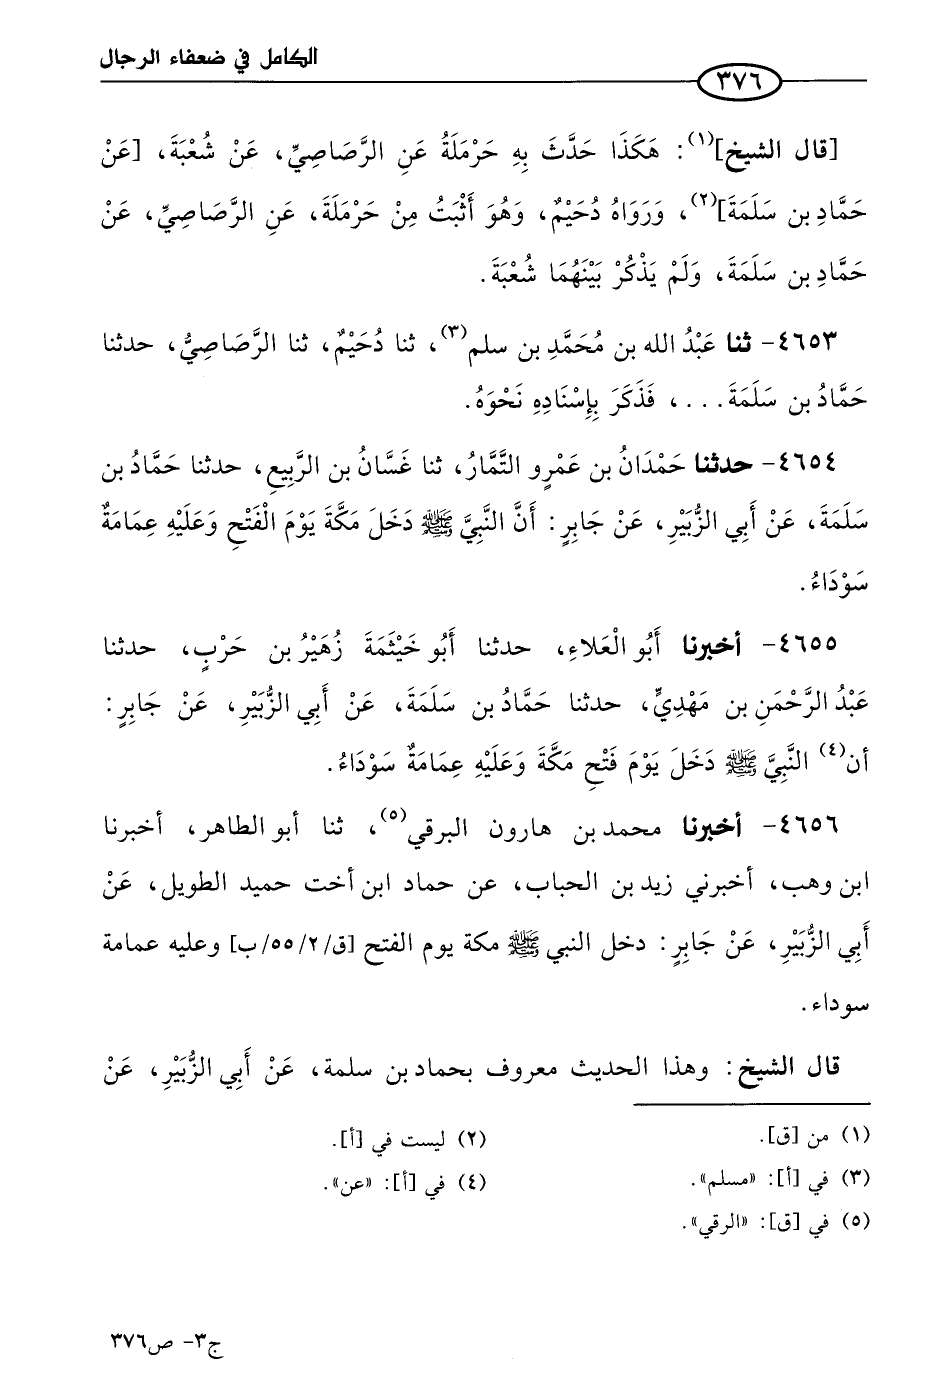 الكامل في ضعفاء الرجال
٣٧٦
[قال الشيخ](١): هَكَذَا حَدَّثَ بِهِ حَرْمَلَةُ عَنِ الرَّصَاصِيِّ، عَنْ شُعْبَةَ، [عَنْ
حَمَّادِ بن سَلَمَةَ](٢)، وَرَوَاهُ دُحَيْمٌ، وَهُوَ أَثْبَتُ مِنْ حَرْمَلَةَ، عَنِ الرَّصَاصِيِّ، عَنْ
حَمَّادِ بن سَلَمَةَ، وَلَمْ يَذْكُرْ بَيْنَهُمَا شُعْبَةَ.
٤٦٥٣- ثنا عَبْدُ الله بن مُحَمَّدِ بن سلم(٣)، ثنا دُحَيْمٌ، ثنا الرَّصَاصِيُّ، حدثنا
حَمَّادُ بن سَلَمَةَ. . . ، فَذَكَرَ بِإِسْنَادِهِ نَحْوَهُ.
٤٦٥٤- حدثنا حَمْدَانُ بن عَمْرِو التَّمَّارُ، ثنا غَسَّانُ بن الرَّبِيعِ، حدثنا حَمَّادُ بن
سَلَمَةَ، عَنْ أَبِي الزُّبَيْرِ، عَنْ جَابِرٍ: أَنَّ النَّبِيَّ ﷺ دَخَلَ مَكَّةَ يَوْمَ الْفَتْحِ وَعَلَيْهِ عِمَامَةٌ
سَوْدَاءُ.
٤٦٥٥- أخبرنا أَبُو الْعَلَاءِ، حدثنا أَبُو خَيْثَمَةَ زُهَيْرُ بن حَرْبٍ، حدثنا
عَبْدُ الرَّحْمَنِ بن مَهْدِيٍّ، حدثنا حَمَّادُ بن سَلَمَةَ، عَنْ أَبِي الزُّبَيْرِ، عَنْ جَابِرٍ:
أن(٤) النَّبِيَّ ﷺ دَخَلَ يَوْمَ فَتْحِ مَكَّةَ وَعَلَيْهِ عِمَامَةٌ سَوْدَاءُ.
٤٦٥٦- أخبرنا محمد بن هارون البرقي(٥)، ثنا أبو الطاهر، أخبرنا
ابن وهب، أخبرني زيد بن الحباب، عن حماد ابن أخت حميد الطويل، عَنْ
أَبِي الزُّبَيْرِ، عَنْ جَابِرٍ: دخل النبي ﷺ مكة يوم الفتح [ق/٥٥/٢/ب] وعليه عمامة
سوداء.
قال الشيخ: وهذا الحديث معروف بحماد بن سلمة، عَنْ أَبِي الزُّبَيْرِ، عَنْ
(١) من [ق]. (٢) ليست في [أ].
(٣) في [أ]: «مسلم». (٤) في [أ]: «عن».
(٥) في [ق]: «الرقي».
ج٣- ص٣٧٦